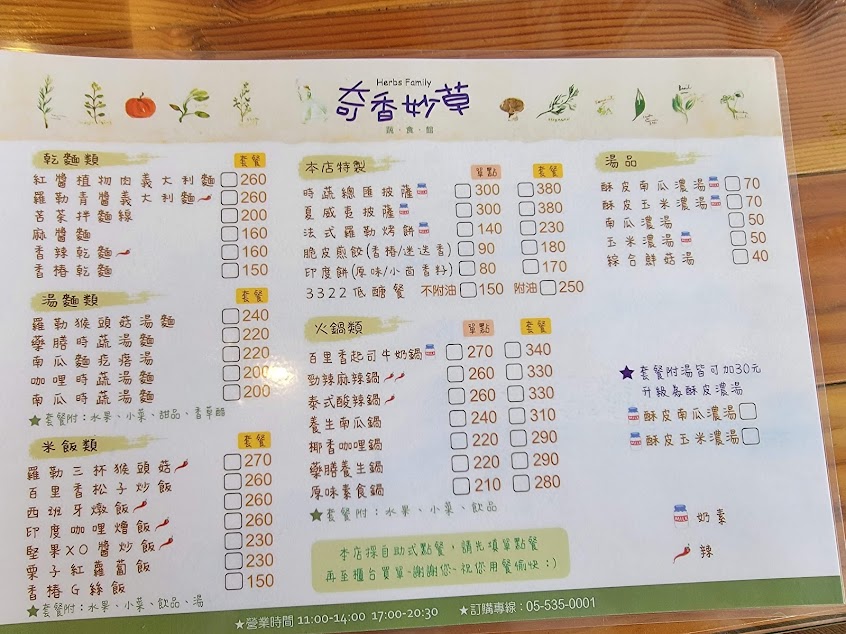 Herbs Family
奇香妙草
蔬‧食‧館
乾麵類 套餐
紅醬植物肉義大利麵 260
羅勒青醬義大利麵 260
苦茶拌麵線 200
麻醬麵 160
香辣乾麵 160
香椿乾麵 150
湯麵類 套餐
羅勒猴頭菇湯麵 240
藥膳時蔬湯麵 220
南瓜麵疙瘩湯 220
咖哩時蔬湯麵 200
南瓜時蔬湯麵 200
★套餐附:水果、小菜、甜品、香草醋
米飯類 套餐
羅勒三杯猴頭菇 270
百里香松子炒飯 260
西班牙燉飯 260
印度咖哩燴飯 260
堅果XO醬炒飯 230
栗子紅蘿蔔飯 230
香椿G絲飯 150
★套餐附:水果、小菜、飲品、湯
本店特製 單點 套餐
時蔬總匯披薩 300 380
夏威夷披薩 300 380
法式羅勒烤餅 140 230
脆皮煎餃(香椿/迷迭香) 90 180
印度餅(原味/小茴香籽) 80 170
3322低醣餐 不附油 150 附油 250
火鍋類 單點 套餐
百里香起司牛奶鍋 270 340
勁辣麻辣鍋 260 330
泰式酸辣鍋 260 330
養生南瓜鍋 240 310
椰香咖哩鍋 220 290
藥膳養生鍋 220 290
原味素食鍋 210 280
★套餐附:水果、小菜、飲品
本店採自助式點餐,請先填單點餐
再至櫃台買單~謝謝您~祝您用餐愉快:)
湯品
酥皮南瓜濃湯 70
酥皮玉米濃湯 70
南瓜濃湯 50
玉米濃湯 50
綜合鮮菇湯 40
★套餐附湯皆可加30元
升級為酥皮濃湯
酥皮南瓜濃湯
酥皮玉米濃湯
MILK 奶素
辣
★營業時間 11:00-14:00 17:00-20:30 ★訂購專線:05-535-0001